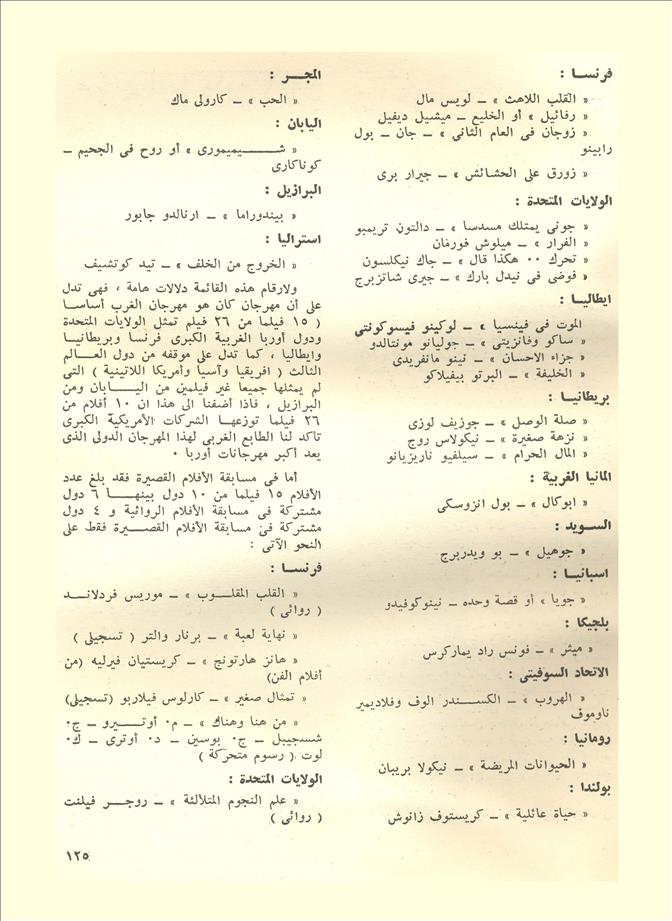 فرنسا :
« القلب اللاهث » ــ لويس مال
« رفائيل » أو الخليع ــ ميشيل ديفيل
« زوجان فى العام الثانى » ــ جان ــ بول
رابينو
« زورق على الحشائش » ــ جيرار برى
الولايات المتحدة :
« جونى يمتلك مسدسا » ــ دالتون تريمبو
« الفرار » ــ ميلوش فورمان
« تحرك ٠٠ هكذا قال » ــ جاك نيكلسون
« فوضى فى نيدل بارك » ــ جيرى شاتزبرج
ايطاليا :
الموت فى فينسيا » ــ لوكينو فيسوكونتى
« ساكو وفانزيتى » ــ جوليانو مونتالدو
« جزاء الاحسان » ــ نينو مانفريدى
« الخليفة » ــ البرتو بيفيلاكو
بريطانيا :
« صلة الوصل » ــ جوزيف لوزى
« نزهة صغيرة » ــ نيكولاس روج
« المال الحرام » ــ سيلفيو ناريزيانو
المانيا الغربية :
« ابوكال » ــ بول انزوسكى
السويد :
« جوهيل » ــ بو ويدربرج
اسبانيا :
« جويا » أو قصة وحده ــ نينوكوفيدو
بلجيكا :
« ميثر » ــ فونس راد يماركرس
الاتحاد السوفيتى :
« الهروب » ــ الكسندر الوف وفلاديمير
ناوموف
رومانيا :
« الحيوانات المريضة » ــ نيكولا بريبان
بولندا :
« حياة عائلية » ــ كريستوف زانوش
المجر :
« الحب » ــ كارولى ماك
اليابان :
« شيميمورى » أو روح فى الجحيم ــ
كوناكارى
البرازيل :
« بيندوراما » ــ ارنالدو جابور
استراليا :
« الخروج من الخلف » ــ تيد كوتشيف
ولارقام هذه القائمة دلالات هامة ، فهى تدل
على أن مهرجان كان هو مهرجان الغرب أساسا
( ١٥ فيلما من ٢٦ فيلم تمثل الولايات المتحدة
ودول أوربا الغربية الكبرى فرنسا وبريطانيا
وايطاليا ، كما تدل على موقفه من دول العالم
الثالث ( افريقيا وآسيا وأمريكا اللاتينية ) التى
لم يمثلها جميعا غير فيلمين من اليابان ومن
البرازيل ، فاذا أضفنا الى هذا ان ١٠ أفلام من
٢٦ فيلما توزعها الشركات الأمريكية الكبرى
تاكد لنا الطابع الغربى لهذا المهرجان الدولى الذى
يعد أكبر مهرجانات أوربا ٠
أما فى مسابقة الأفلام القصيرة فقد بلغ عدد
الأفلام ١٥ فيلما من ١٠ دول بينها ٦ دول
مشتركة فى مسابقة الأفلام الروائية و ٤ دول
مشتركة فى مسابقة الأفلام القصيرة فقط على
النحو الآتى :
فرنسا :
« القلب المقلوب » ــ موريس فردلاند
( روائى )
« نهاية لعبة » ــ برنار والتر ( تسجيلى )
« هانز هارتونج » ــ كريستيان فيرليه (من
أفلام الفن)
« تمثال صغير » ــ كارلوس فيلاربو (تسجيلى)
« من هنا وهناك » ــ م٠ أوتيرو ــ ج٠
شسجيبل ــ ج٠ بوسين ــ د٠ أوترى ــ ك٠
لوت ( رسوم متحركة )
الولايات المتحدة :
« علم النجوم المتلألئة » ــ روجر فيلنت
( روائى )
١٢٥